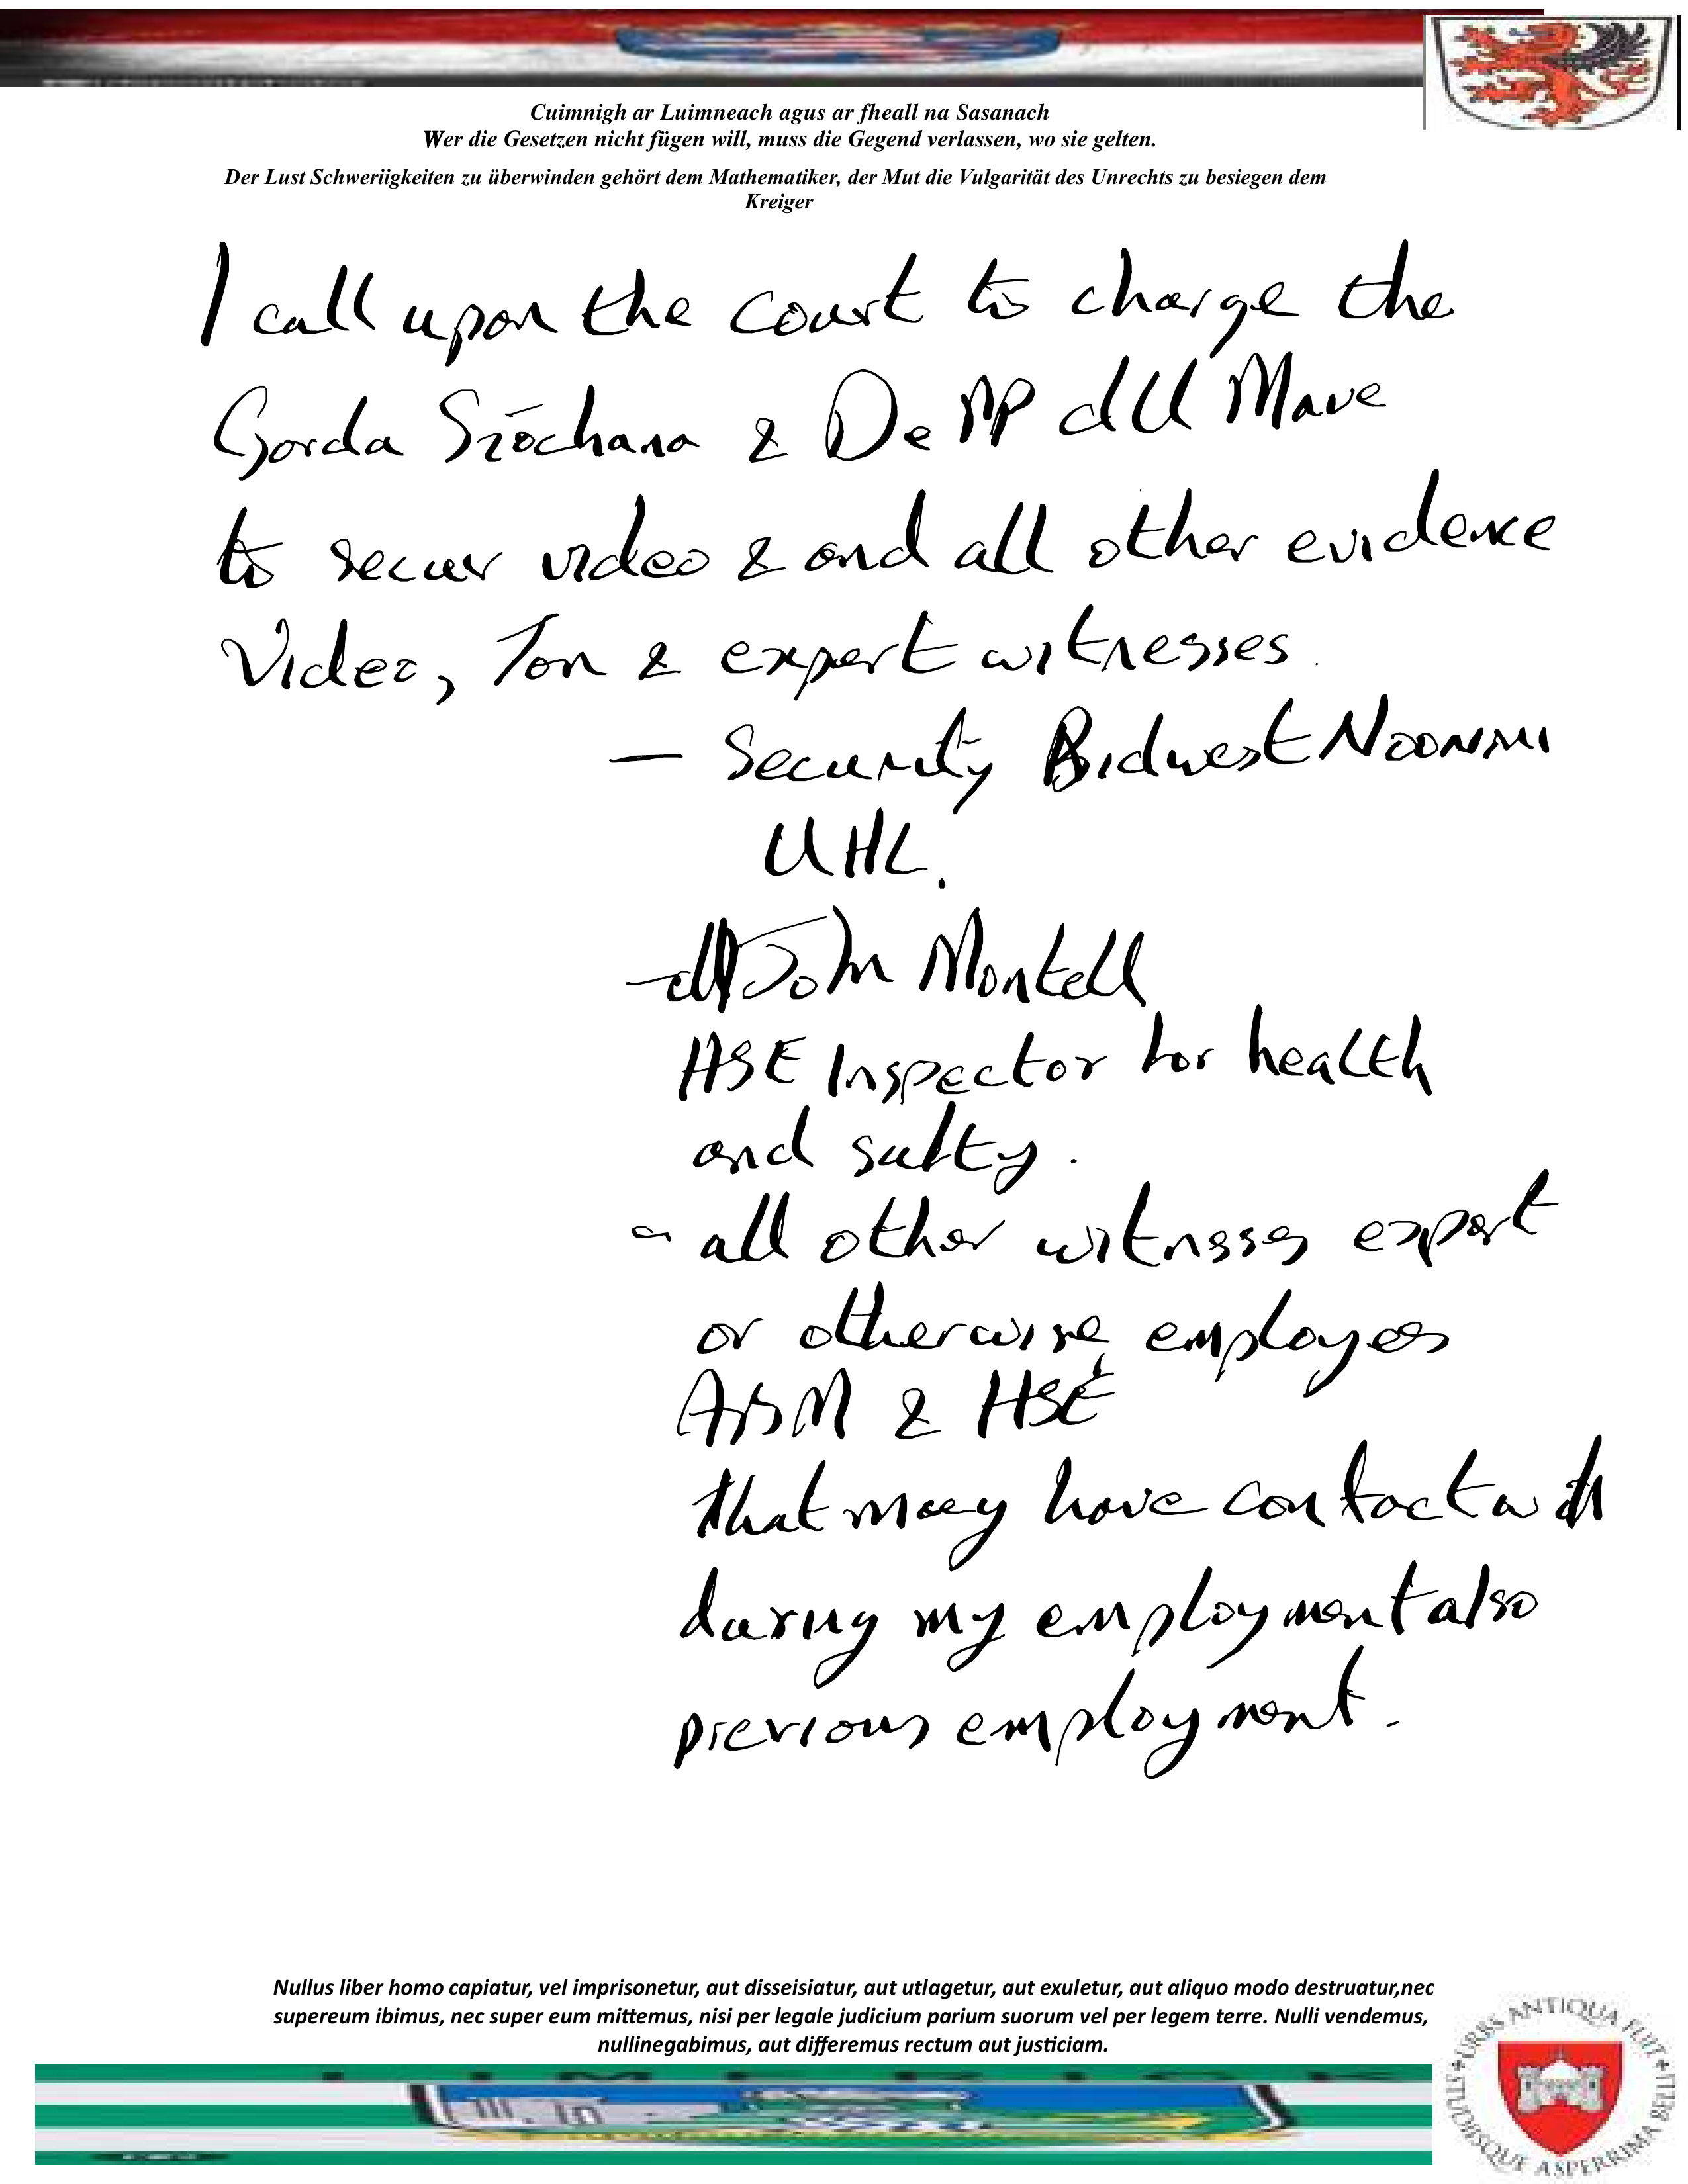 Cuimnigh ar Luimneach agus ar fheall na Sasanach
Wer die Gesetzen nicht fügen will, muss die Gegend verlassen, wo sie gelten.
Der Lust Schweriigkeiten zu überwinden gehört dem Mathematiker, der Mut die Vulgarität des Unrechts zu besiegen dem
Kreiger
I call upon the court to charge the
Gorda Síochana & De PP dll Mave
to secur video & and all other evidence
Video, Ton & expert witnesses.
– Security Bidvest Noonan
UHL.
– John Montell
HSE Inspector for health
and safty.
– all other witnesses expert
or otherwise employees
ABM & HSE
that may have contact with
during my employment also
previous employment.
Nullus liber homo capiatur, vel imprisonetur, aut disseisiatur, aut utlagetur, aut exuletur, aut aliquo modo destruatur,nec
supereum ibimus, nec super eum mittemus, nisi per legale judicium parium suorum vel per legem terre. Nulli vendemus,
nullinegabimus, aut differemus rectum aut justiciam.
URBS ANTIQUA FUIT STUDIISQUE ASPERRIMA BELLI